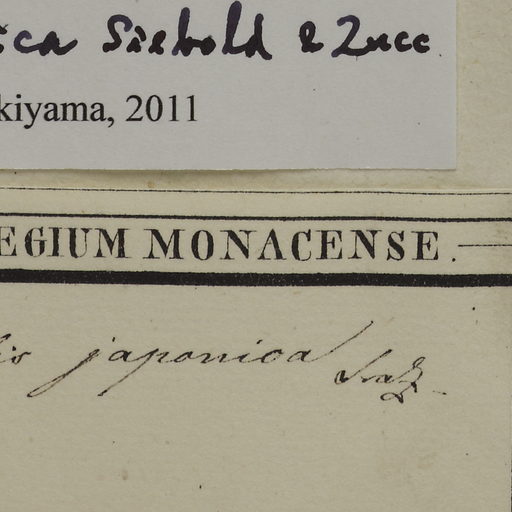 ica Siebold & Zucc
kiyama, 2011
EGIUM MONACENSE.
is japonica